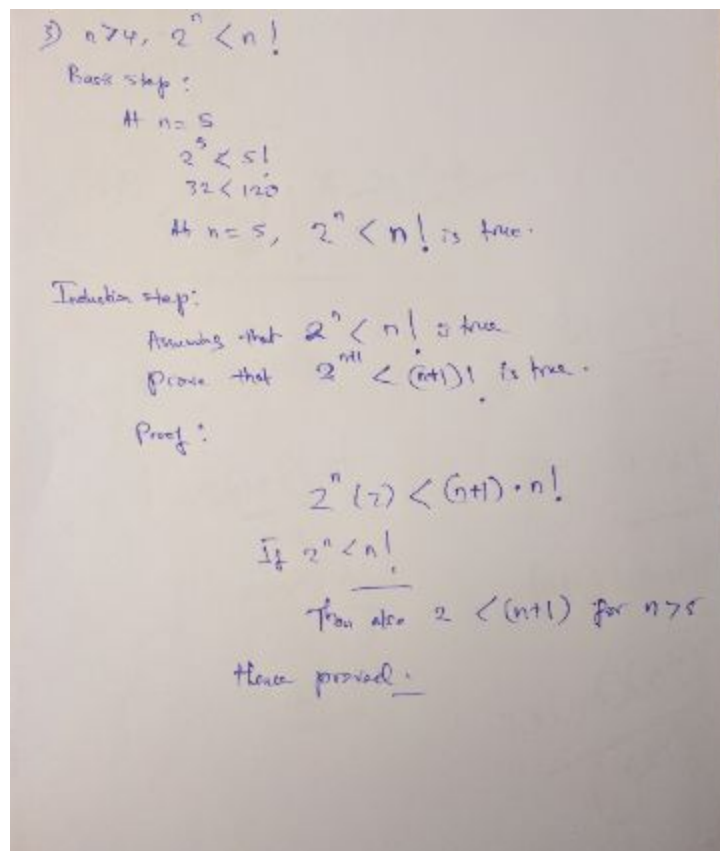 3) n>4, 2^n < n!
Basis step :
At n= 5
2^5 < 5!
32 < 120
At n = 5, 2^n < n! is true.
Induction step:
Assuming that 2^n < n! is true
prove that 2^(n+1) < (n+1)! is true.
Proof :
2^n (2) < (n+1) · n!
If 2^n < n!
Then also 2 < (n+1) for n>5
Hence proved.